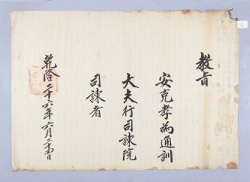 教旨
安克孝為通訓
大夫行司諫院
司諫者
乾隆二十六年六月二十日